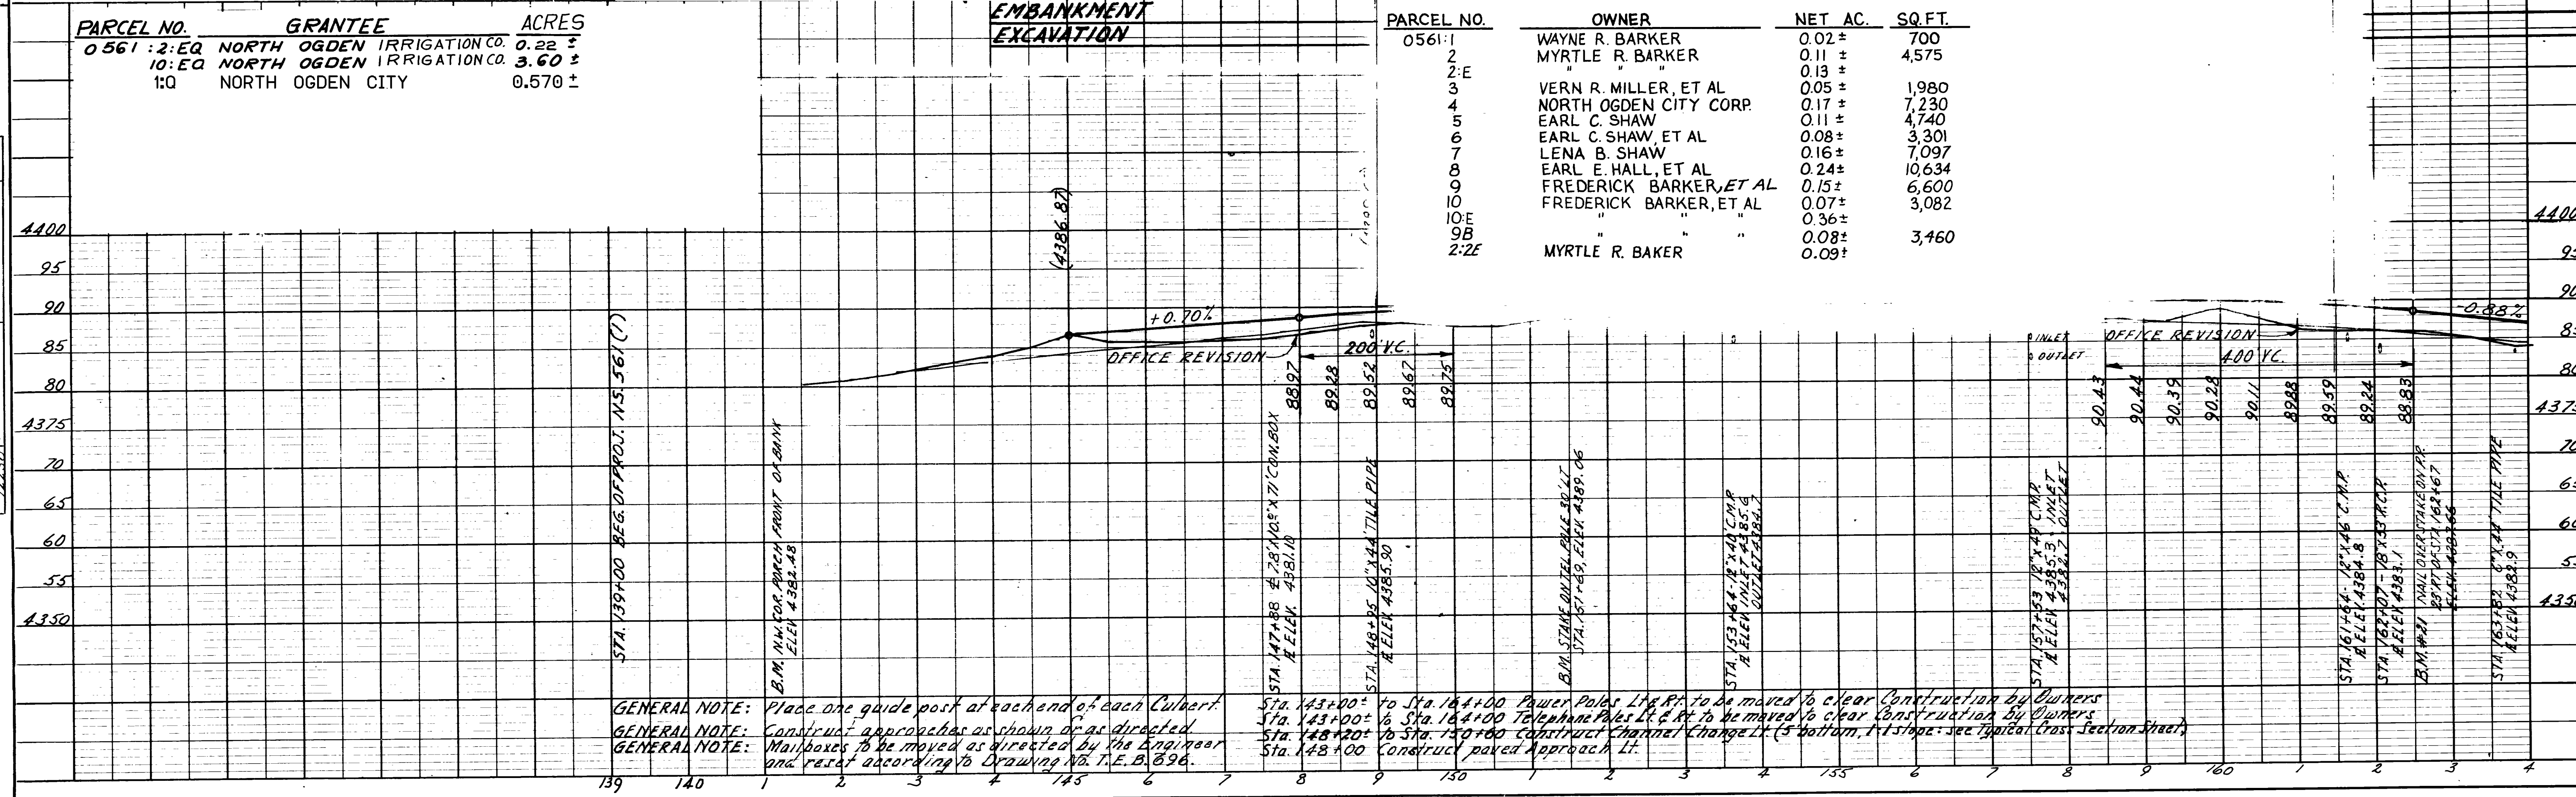 PARCEL NO. GRANTEE ACRES
0561:2:EQ NORTH OGDEN IRRIGATION CO. 0.22 ±
10:EQ NORTH OGDEN IRRIGATION CO. 3.60 ±
1:Q NORTH OGDEN CITY 0.570 ±
EMBANKMENT
EXCAVATION
PARCEL NO. OWNER NET AC. SQ.FT.
0561:1 WAYNE R. BARKER 0.02± 700
2 MYRTLE R. BARKER 0.11 ± 4,575
2:E " " " 0.13 ±
3 VERN R. MILLER, ET AL 0.05 ± 1,980
4 NORTH OGDEN CITY CORP. 0.17 ± 7,230
5 EARL C. SHAW 0.11 ± 4,740
6 EARL C. SHAW, ET AL 0.08± 3,301
7 LENA B. SHAW 0.16± 7,097
8 EARL E. HALL, ET AL 0.24± 10,634
9 FREDERICK BARKER, ET AL 0.15± 6,600
10 FREDERICK BARKER, ET AL 0.07± 3,082
10:E " " " 0.36±
9B " " " 0.08± 3,460
2:2E MYRTLE R. BAKER 0.09±
4400
95
90
85
80
4375
70
65
60
55
4350
(4386.87)
+0.70%
OFFICE REVISION
200' V.C.
88.97
89.28
89.52
89.67
89.75
INLET
OUTLET
OFFICE REVISION
400' V.C.
-0.88%
90.43
90.44
90.39
90.28
90.11
89.88
89.59
89.24
88.83
4400
95
90
85
80
4375
70
65
60
55
4350
STA. 139+00 BEG. OF PROJ. NS. 561 (1)
B.M. N.W. COR. PORCH FRONT OF BANK
ELEV. 4382.48
STA. 147+88 ℄ 7.8' X 10.5' X 71' CON. BOX
℄ ELEV. 4381.10
STA. 148+95 10" X 44' TILE PIPE
℄ ELEV. 4385.90
B.M. STAKE ON TEL. POLE 30' LT.
STA. 151+69, ELEV. 4389.06
STA. 153+64-12" X 40' C.M.P.
℄ ELEV. INLET 4385.6
OUTLET 4384.7
STA. 157+53 12" X 49' C.M.P.
℄ ELEV. 4385.3 - INLET
4382.7 - OUTLET
STA. 161+64 - 12" X 46' C.M.P.
℄ ELEV. 4384.8
STA. 162+07 - 18" X 53' R.C.P.
℄ ELEV. 4383.1
B.M. #21 NAIL OVER STAKE ON P.P.
23' RT. OF STA. 162+67
STA. 163+82 8" X 44' TILE PIPE
℄ ELEV. 4382.9
GENERAL NOTE: Place one guide post at each end of each Culvert.
GENERAL NOTE: Construct approaches as shown or as directed.
GENERAL NOTE: Mailboxes to be moved as directed by the Engineer
and reset according to Drawing No. T.E.B. 696.
Sta. 143+00± to Sta. 164+00 Power Poles Lt & Rt. to be moved to clear Construction by Owners
Sta. 143+00± to Sta. 164+00 Telephone Poles Lt. & Rt. to be moved to clear Construction by Owners
Sta. 148+20± to Sta. 150+60 Construct Channel Change Lt. (5' bottom, 1:1 slope: see Typical Cross Section Sheet)
Sta. 148+00 Construct paved Approach Lt.
139 140 1 2 3 4 145 6 7 8 9 150 1 2 3 4 155 6 7 8 9 160 1 2 3 4